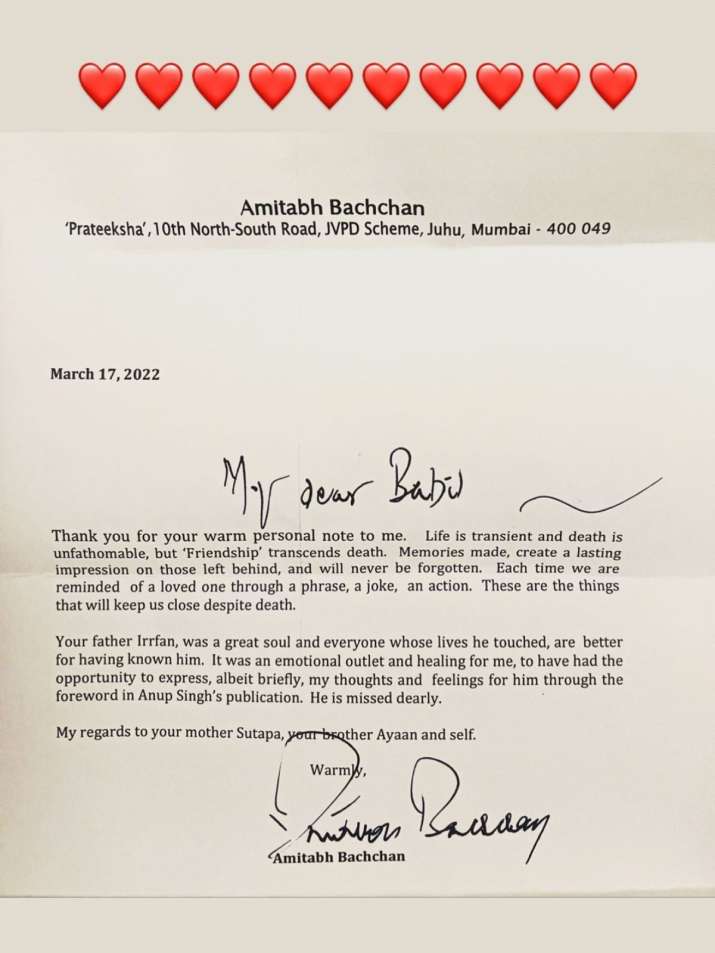 Amitabh Bachchan
'Prateeksha', 10th North-South Road, JVPD Scheme, Juhu, Mumbai - 400 049
March 17, 2022
My dear Babil
Thank you for your warm personal note to me. Life is transient and death is
unfathomable, but 'Friendship' transcends death. Memories made, create a lasting
impression on those left behind, and will never be forgotten. Each time we are
reminded of a loved one through a phrase, a joke, an action. These are the things
that will keep us close despite death.
Your father Irrfan, was a great soul and everyone whose lives he touched, are better
for having known him. It was an emotional outlet and healing for me, to have had the
opportunity to express, albeit briefly, my thoughts and feelings for him through the
foreword in Anup Singh's publication. He is missed dearly.
My regards to your mother Sutapa, your brother Ayaan and self.
Warmly,
Amitabh Bachchan
Amitabh Bachchan